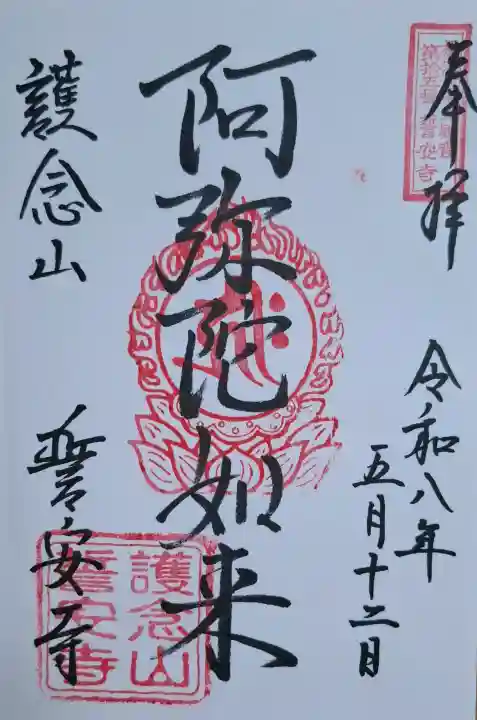 奉拝
第十五番
誓安寺
令和八年
五月十二日
阿弥陀如来
護念山
誓安寺
護念山
誓安寺